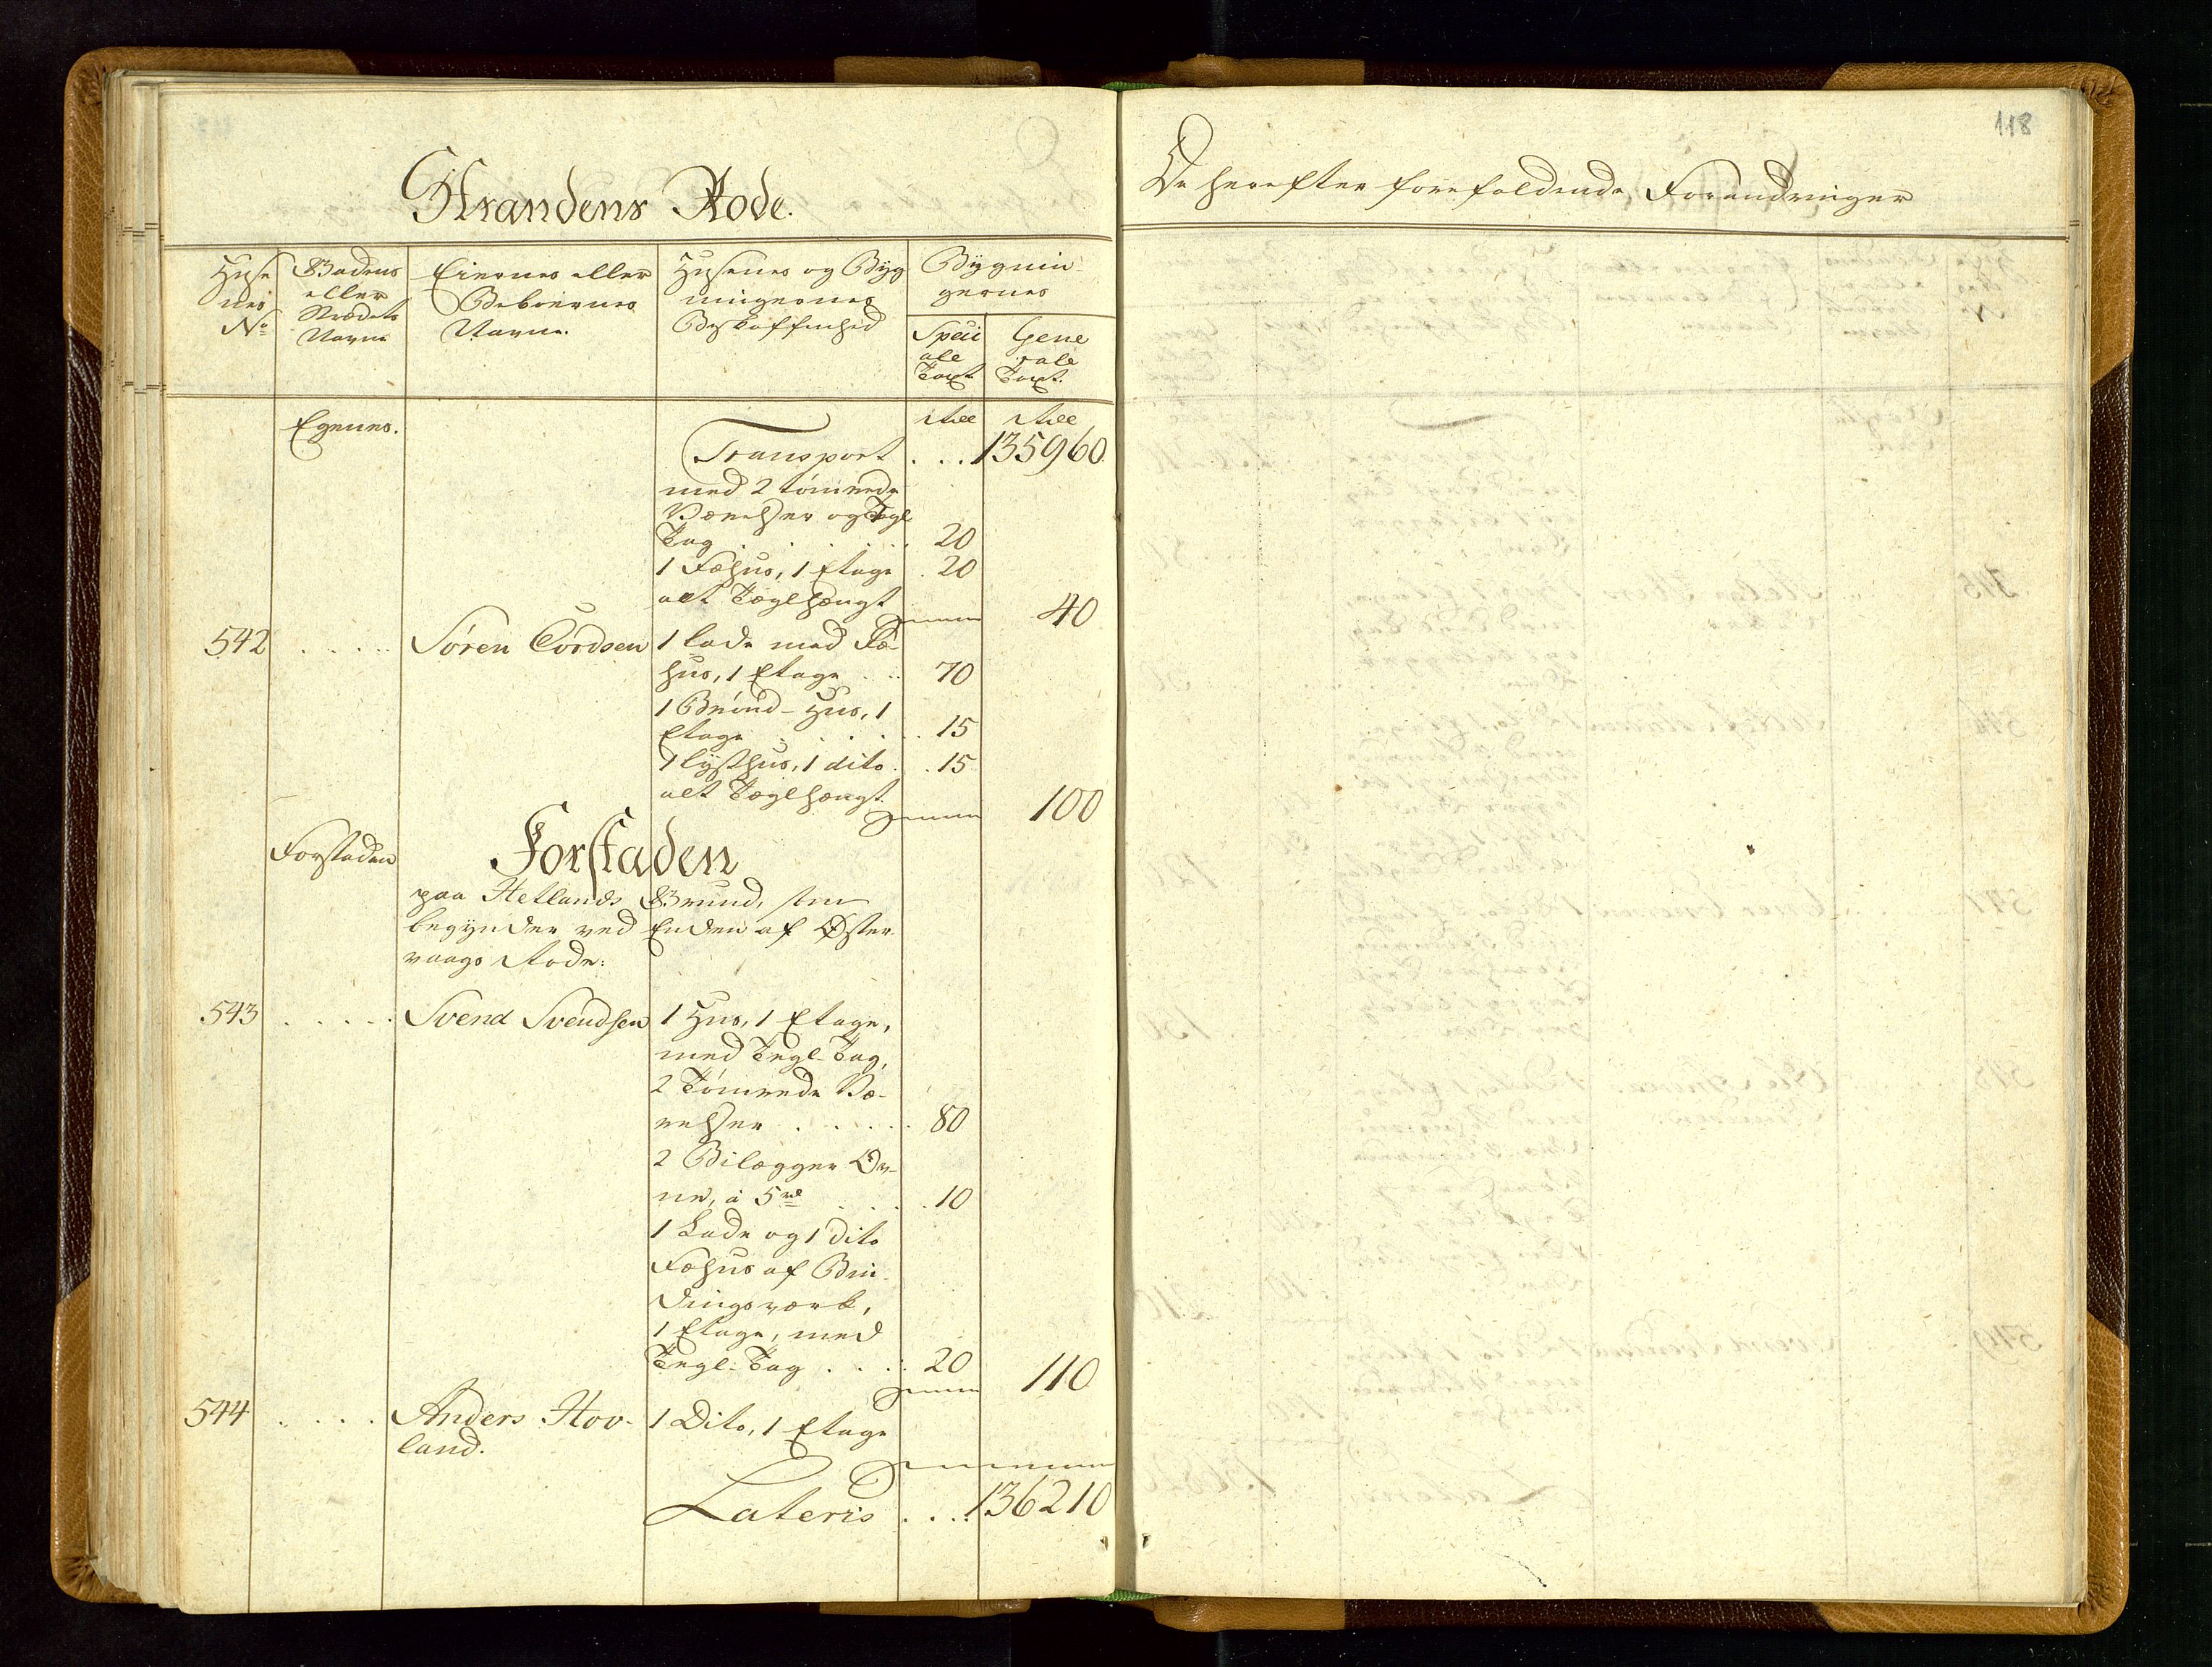 Strandens Rode.
Huse
nes
No
Gadens
eller
Strædets
Navne
Eiernes eller
Beboernes
Navne.
Husenes og Byg
ningernes
Beskaffenhed
Bygnin
gernes
Speci
ale
Taxt.
Gene
rale
Taxt.
Egenes.
Rdl Rdl
Transport . . . 135960.
med 2 tømrede
Værelser og Tegl
Tag . . . . . 20
1 Fæhus, 1 Etage . 20
alt Teglhængt
40
542 . . . . . Søren Tordsen 1 lade med Fæ-
hus, 1 Etage . . . 70
1 Brønd-Hus, 1
Etage . . . . . 15
1 lysthus, 1 dito . . 15
alt Teglhængt.
100
Forstaden Forstaden
paa Hetlands Grund, som
begynder ved Enden af Øster
vaags Rode:
543 . . . . . Svend Svendsen 1 Hus, 1 Etage,
med Tegl-Tag,
2 Tømrede Væ-
relser . . . . . 80
2 Bilægger Ov-
ne, à 5 rd . . . . 10
1 Lade og 1 dito
Fæhus af Bin-
dingsværk,
1 Etage, med
Tegl-Tag . . . . 20
110
544 . . . . Anders Hov- 1 Dito, 1 Etage
land.
Lateris . . . . 136210
118
De herefter forefaldende Forandringer